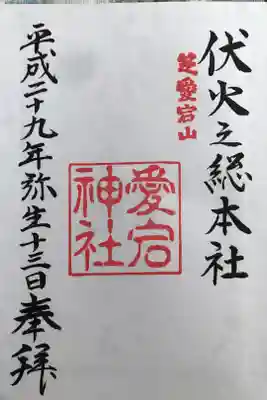 伏火之総本社
芝愛宕山
愛宕
神社
平成二十九年弥生十三日奉拝